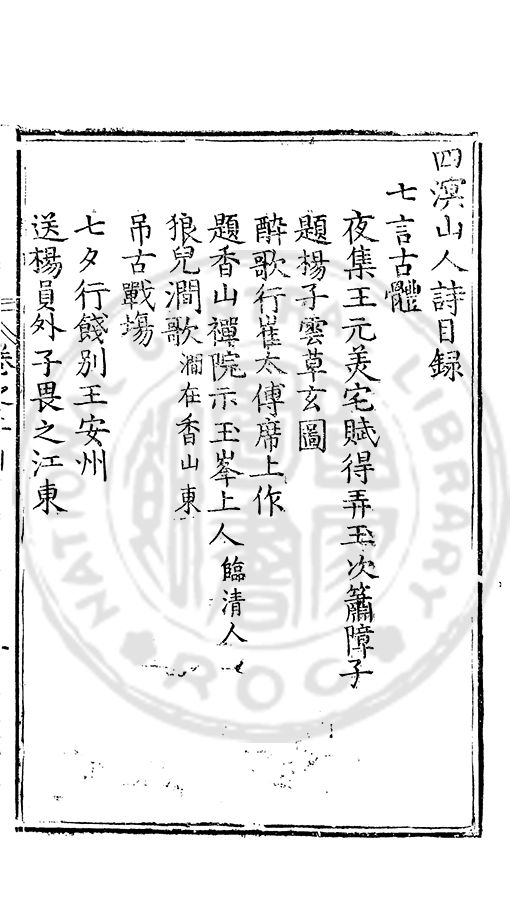 四溟山人詩目録
七言古體
夜集王元美宅賦得弄玉次簫障子
題楊子雲草玄圖
醉歌行崔太傅席上作
題香山禪院示玉峯上人臨清人
狼兒澗歌澗在香山東
吊古戰場
七夕行餞別王安州
送楊員外子畏之江東
NATIONAL CENTRAL LIBRARY
ROC